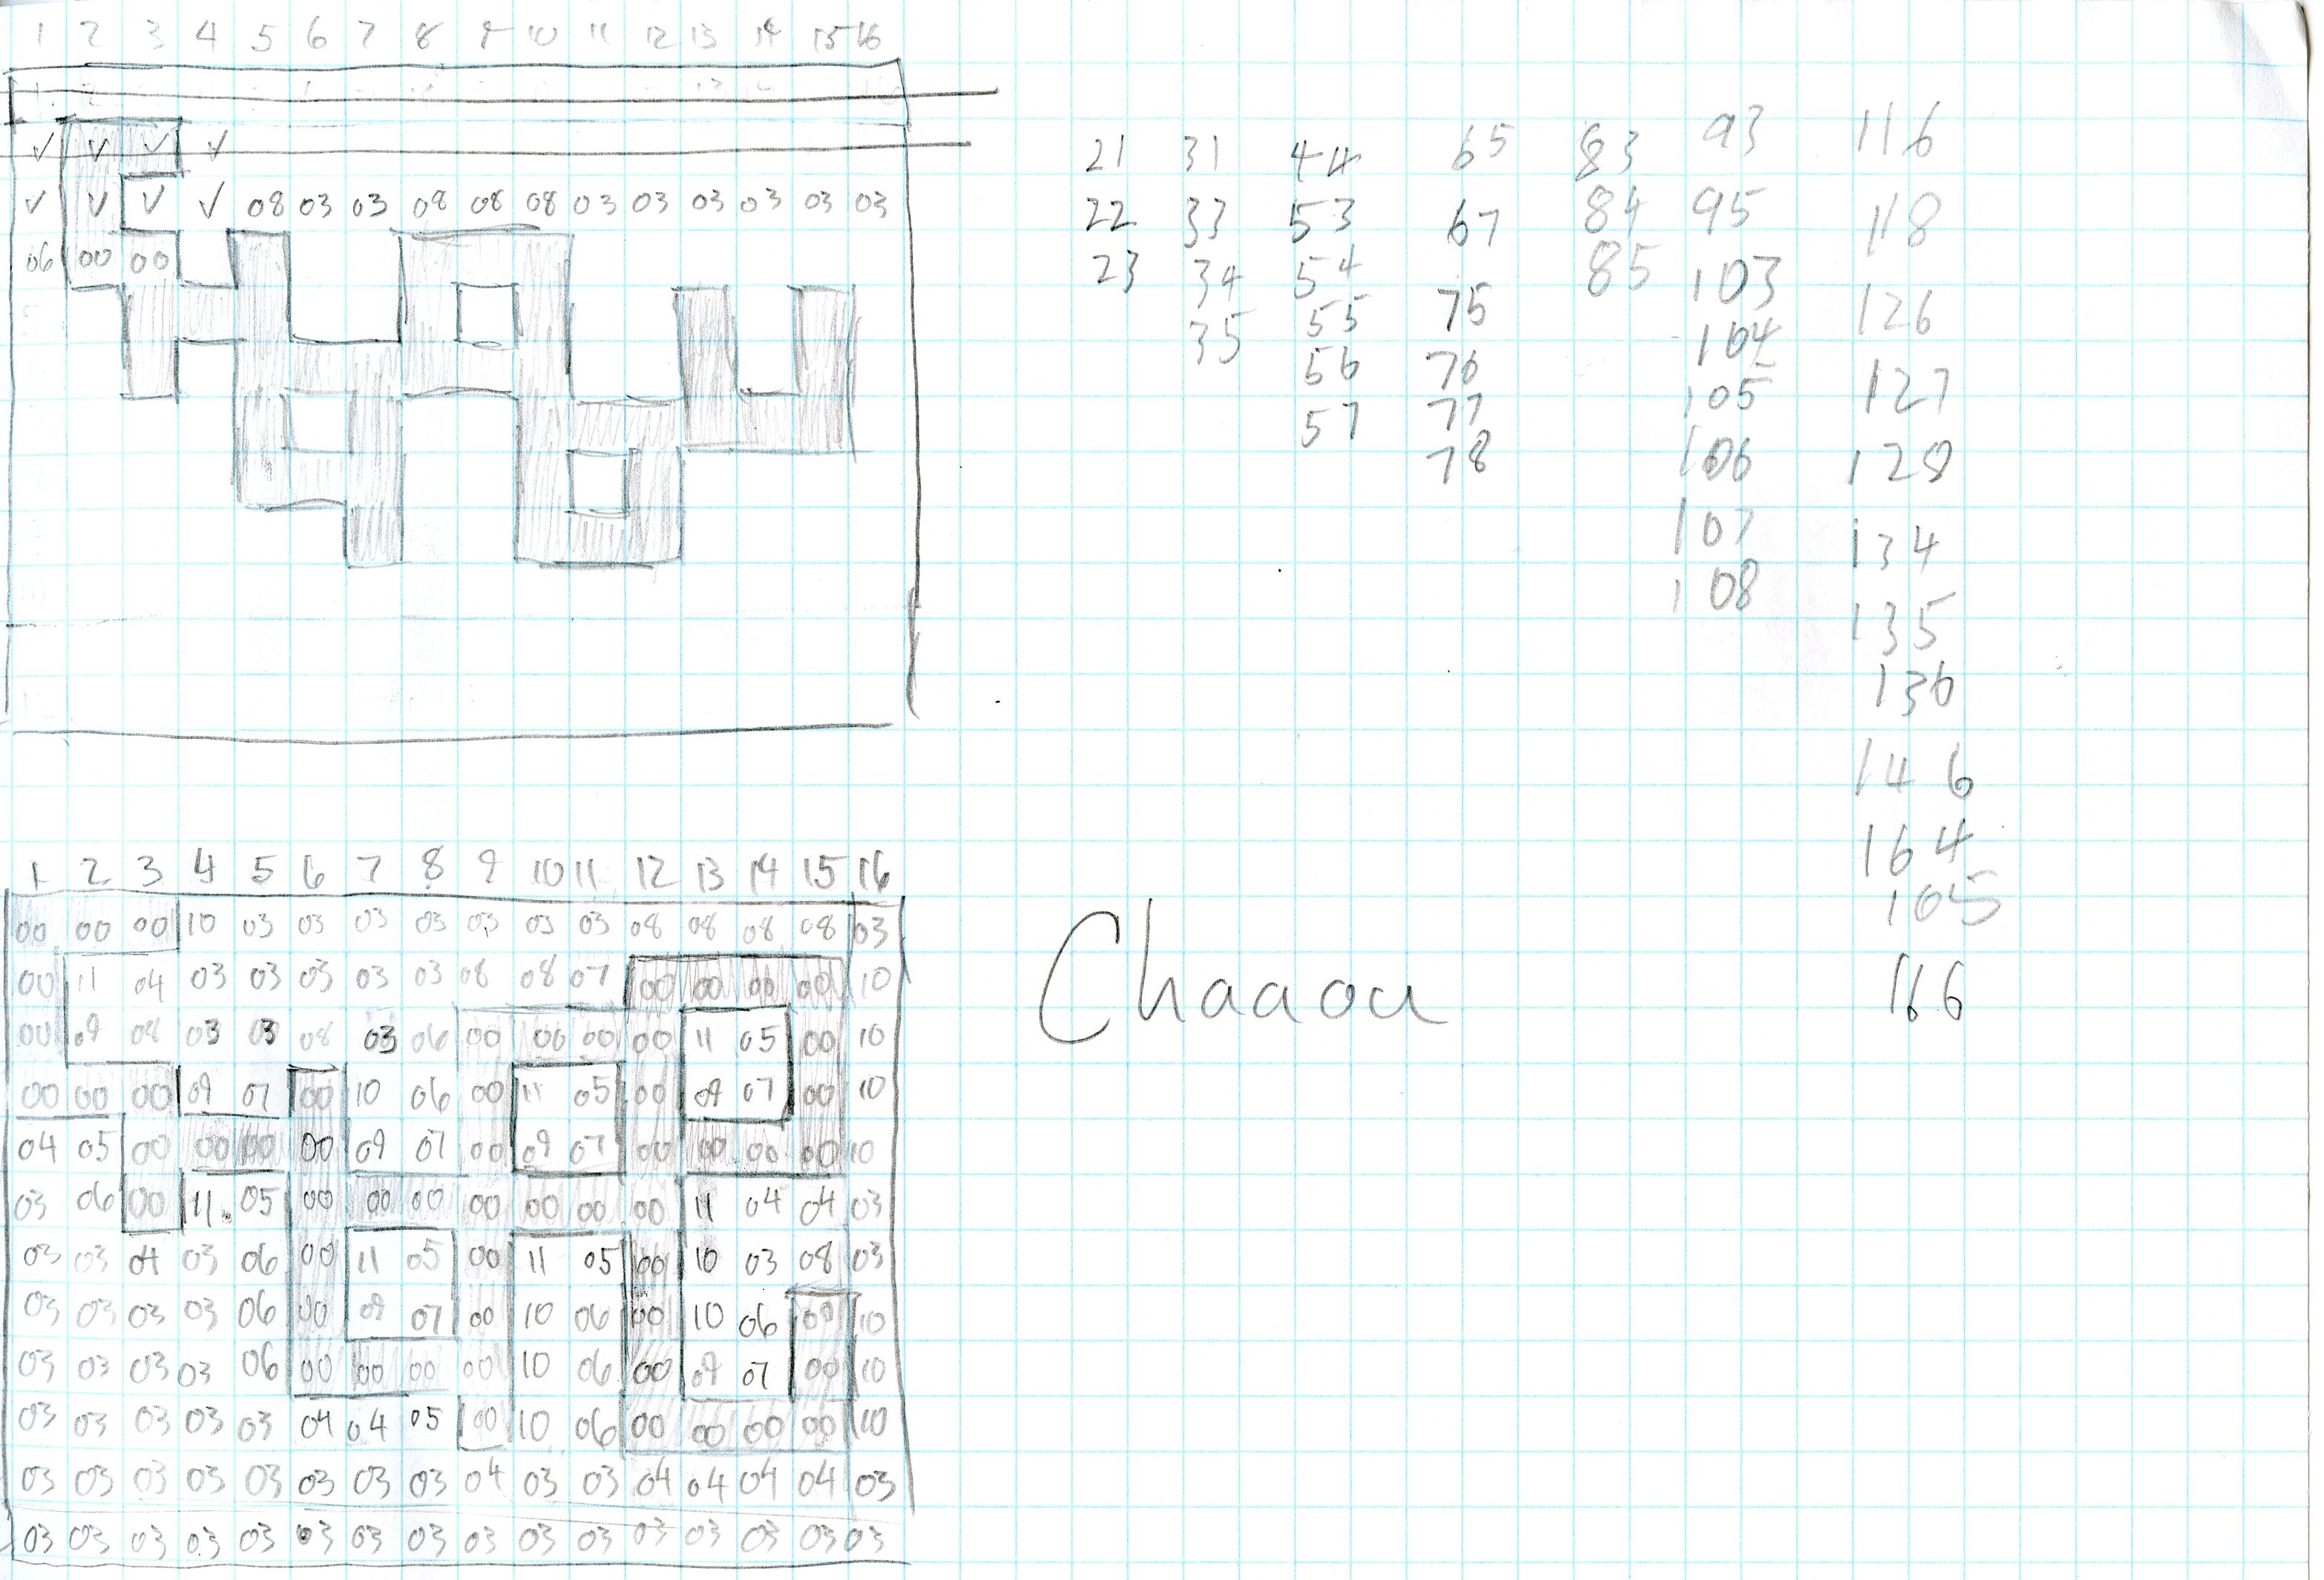 1 2 3 4 5 6 7 8 9 10 11 12 13 14 15 16
✓ ✓ ✓ ✓
✓ ✓ ✓ ✓ 08 03 03 08 08 08 03 03 03 03 03 03
06 00 00
21 31 44 65 83 93 116
22 33 53 67 84 95 118
23 34 54 75 85 103 126
35 55 76 104 127
56 77 105 128
57 78 106 134
107 135
108 136
146
164
165
166
1 2 3 4 5 6 7 8 9 10 11 12 13 14 15 16
00 00 00 10 03 03 03 03 03 03 03 08 08 08 08 03
00 11 04 03 03 03 03 03 08 08 07 00 00 00 00 10
00 09 08 03 03 08 03 06 00 00 00 00 11 05 00 10
00 00 00 09 07 00 10 06 00 11 05 00 09 07 00 10
04 05 00 00 00 00 09 07 00 09 07 00 00 00 00 10
03 06 00 11 05 00 00 00 00 00 00 00 11 04 04 03
03 03 04 03 06 00 11 05 00 11 05 00 10 03 08 03
03 03 03 03 06 00 09 07 00 10 06 00 10 06 00 10
03 03 03 03 06 00 00 00 00 10 06 00 09 07 00 10
03 03 03 03 03 04 04 05 00 10 06 00 00 00 00 10
03 03 03 03 03 03 03 03 04 03 03 04 04 04 04 03
03 03 03 03 03 03 03 03 03 03 03 03 03 03 03 03
Chaaou